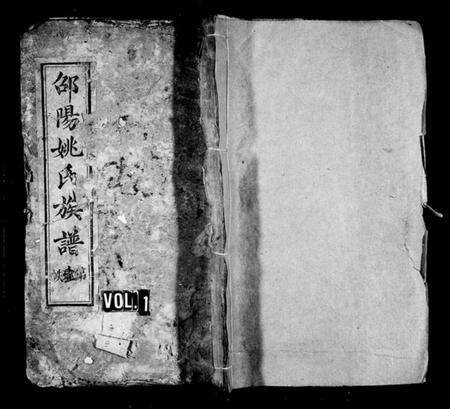 邵陽姚氏族譜
VOL. 1